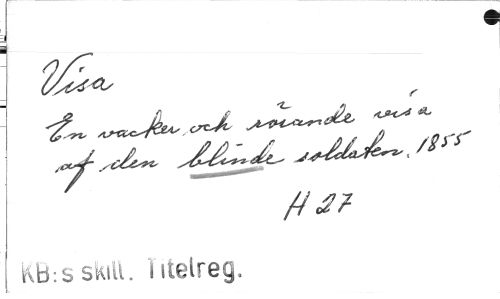 Visa
En vacker och rörande visa
af den blinde soldaten. 1855
H 27
KB:s skill. Titelreg.